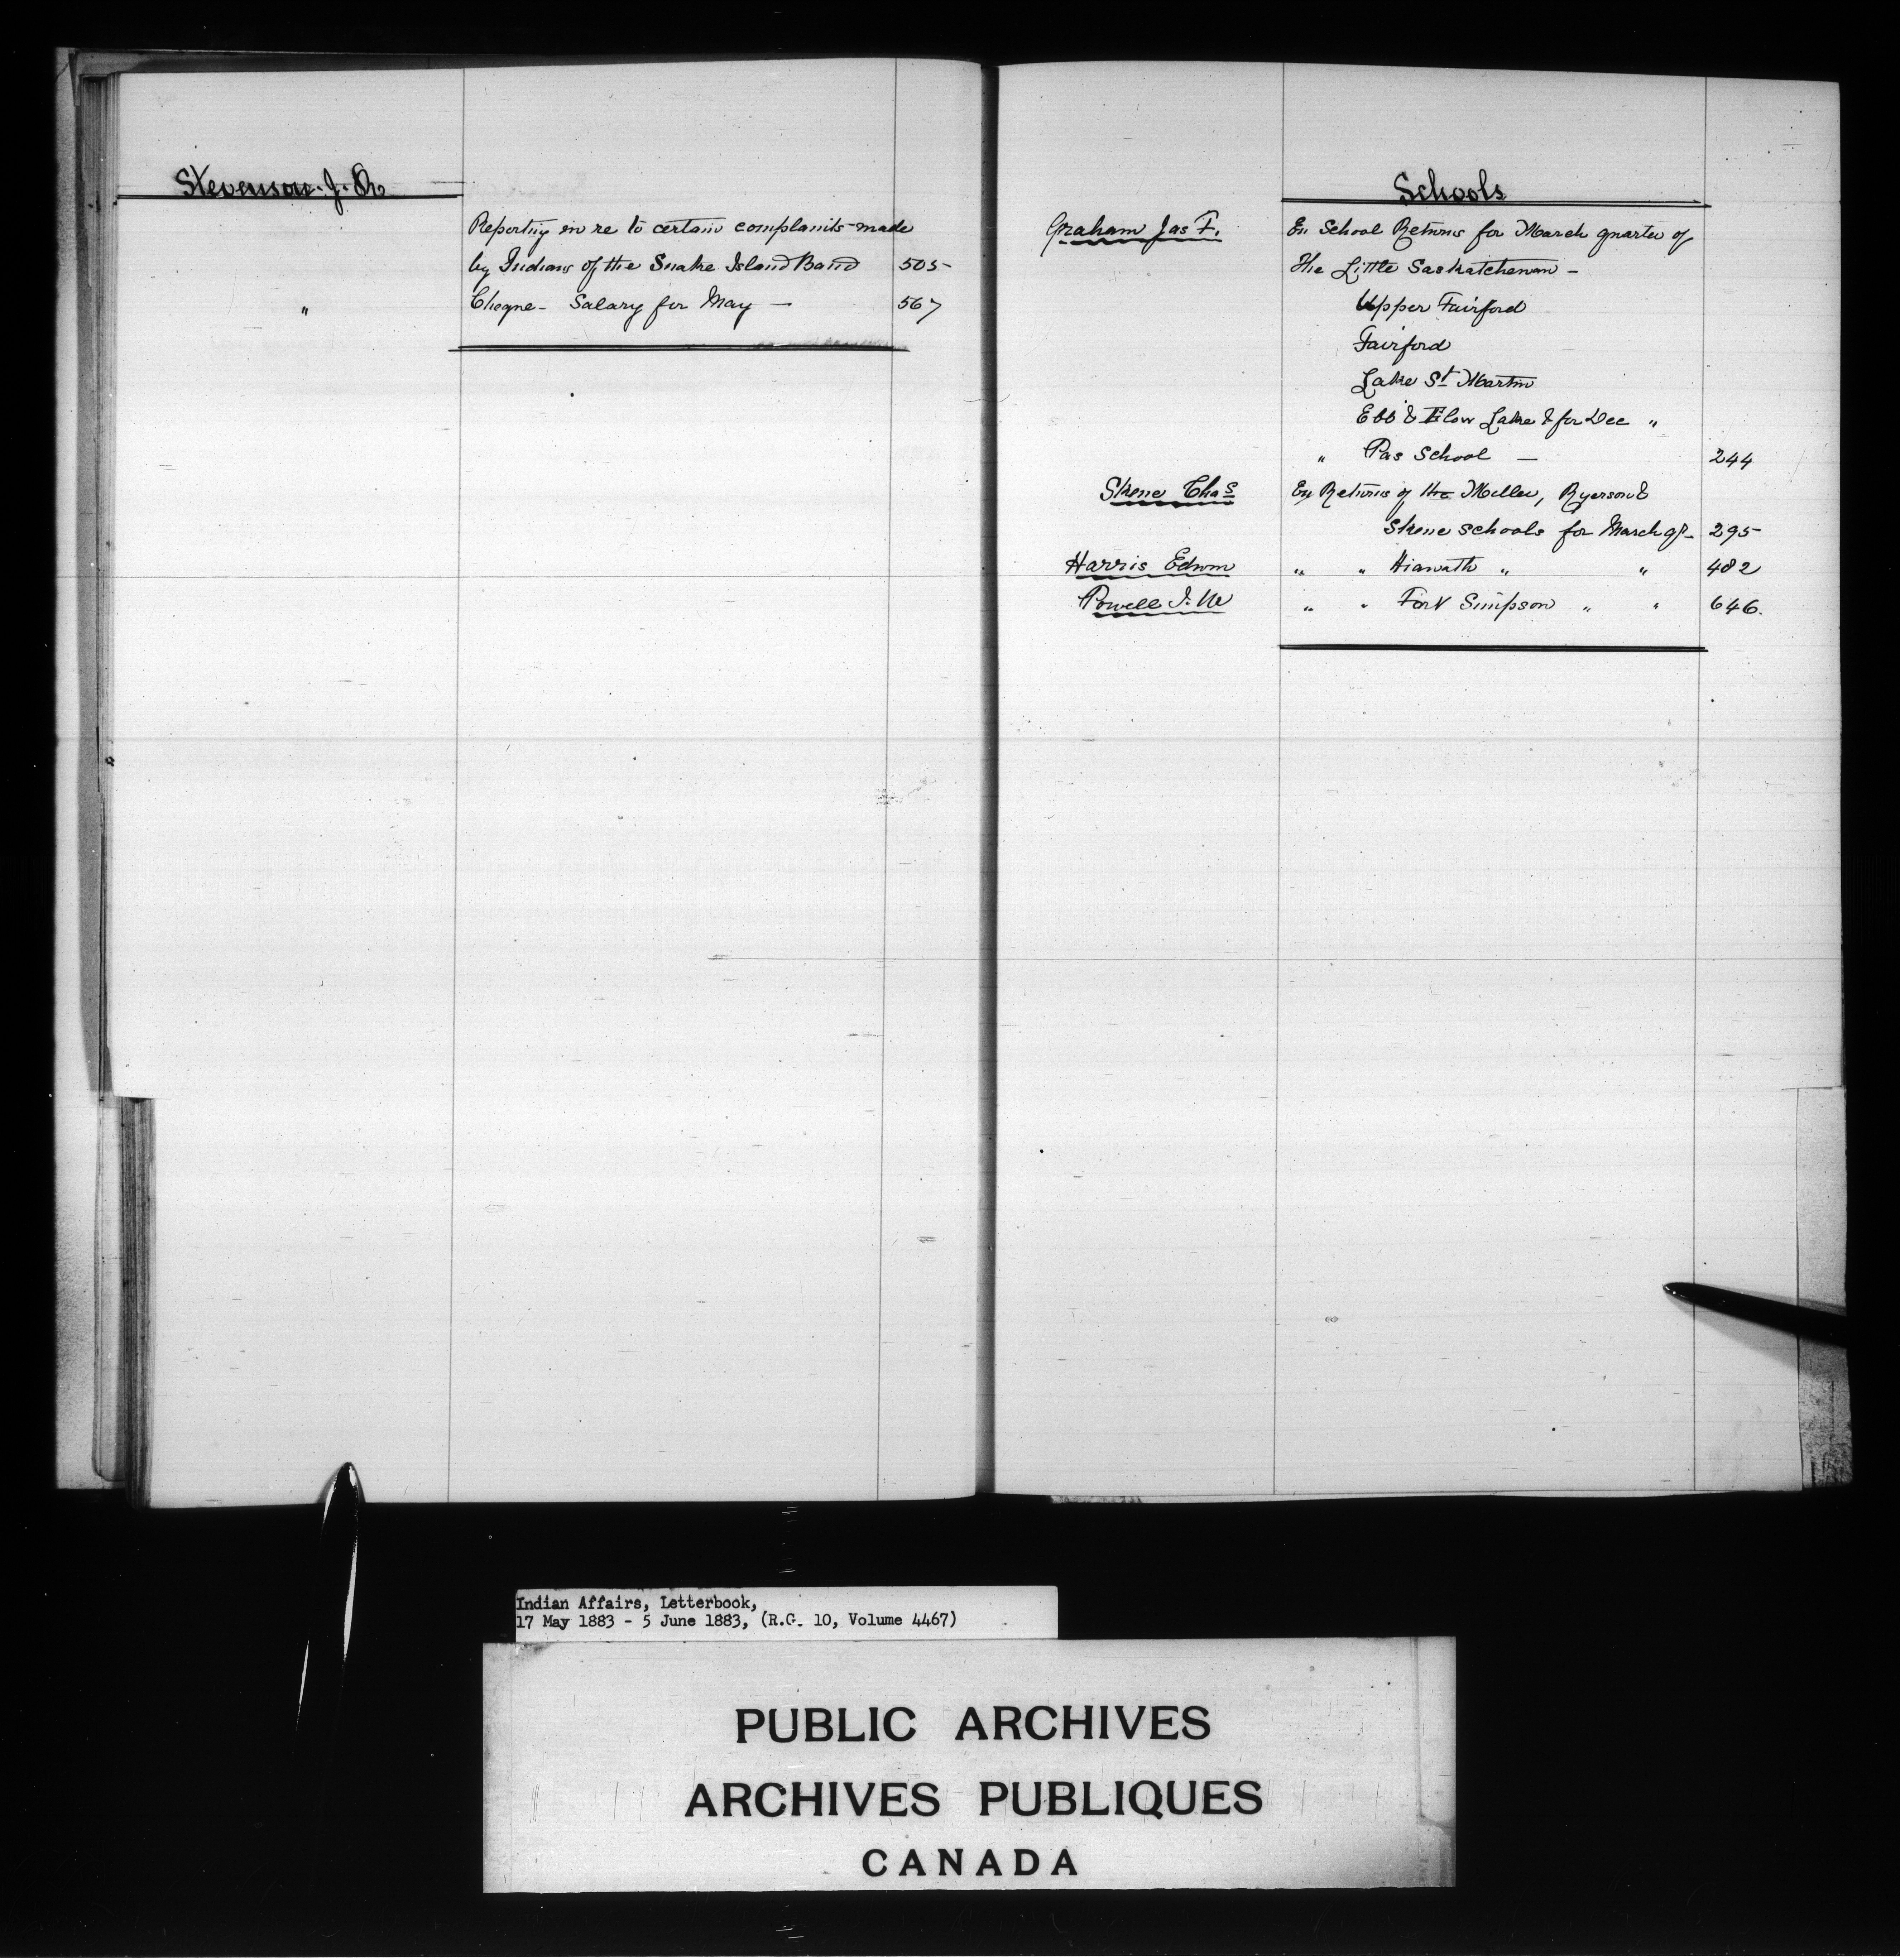 Stevenson. J. R
Reporting in re to certain complaints made
by Indians of the Snake Island Band 505
" Cheque - Salary for May — 567
Schools
Graham Jas F. En School Returns for March quarter of
the Little Saskatchewan —
Upper Fairford
Fairford
Lake St Martin
Ebb & Flow Lake & for Dec "
" Pas School — 244
Skene Chas En Returns of the Miller, Ryerson &
Skene schools for March qr 295
Harris Edwm " " Hiawath " " 482
Powell I. W " " Fort Simpson " " 646.
Indian Affairs, Letterbook,
17 May 1883 - 5 June 1883, (R.G. 10, Volume 4467)
PUBLIC ARCHIVES
ARCHIVES PUBLIQUES
CANADA